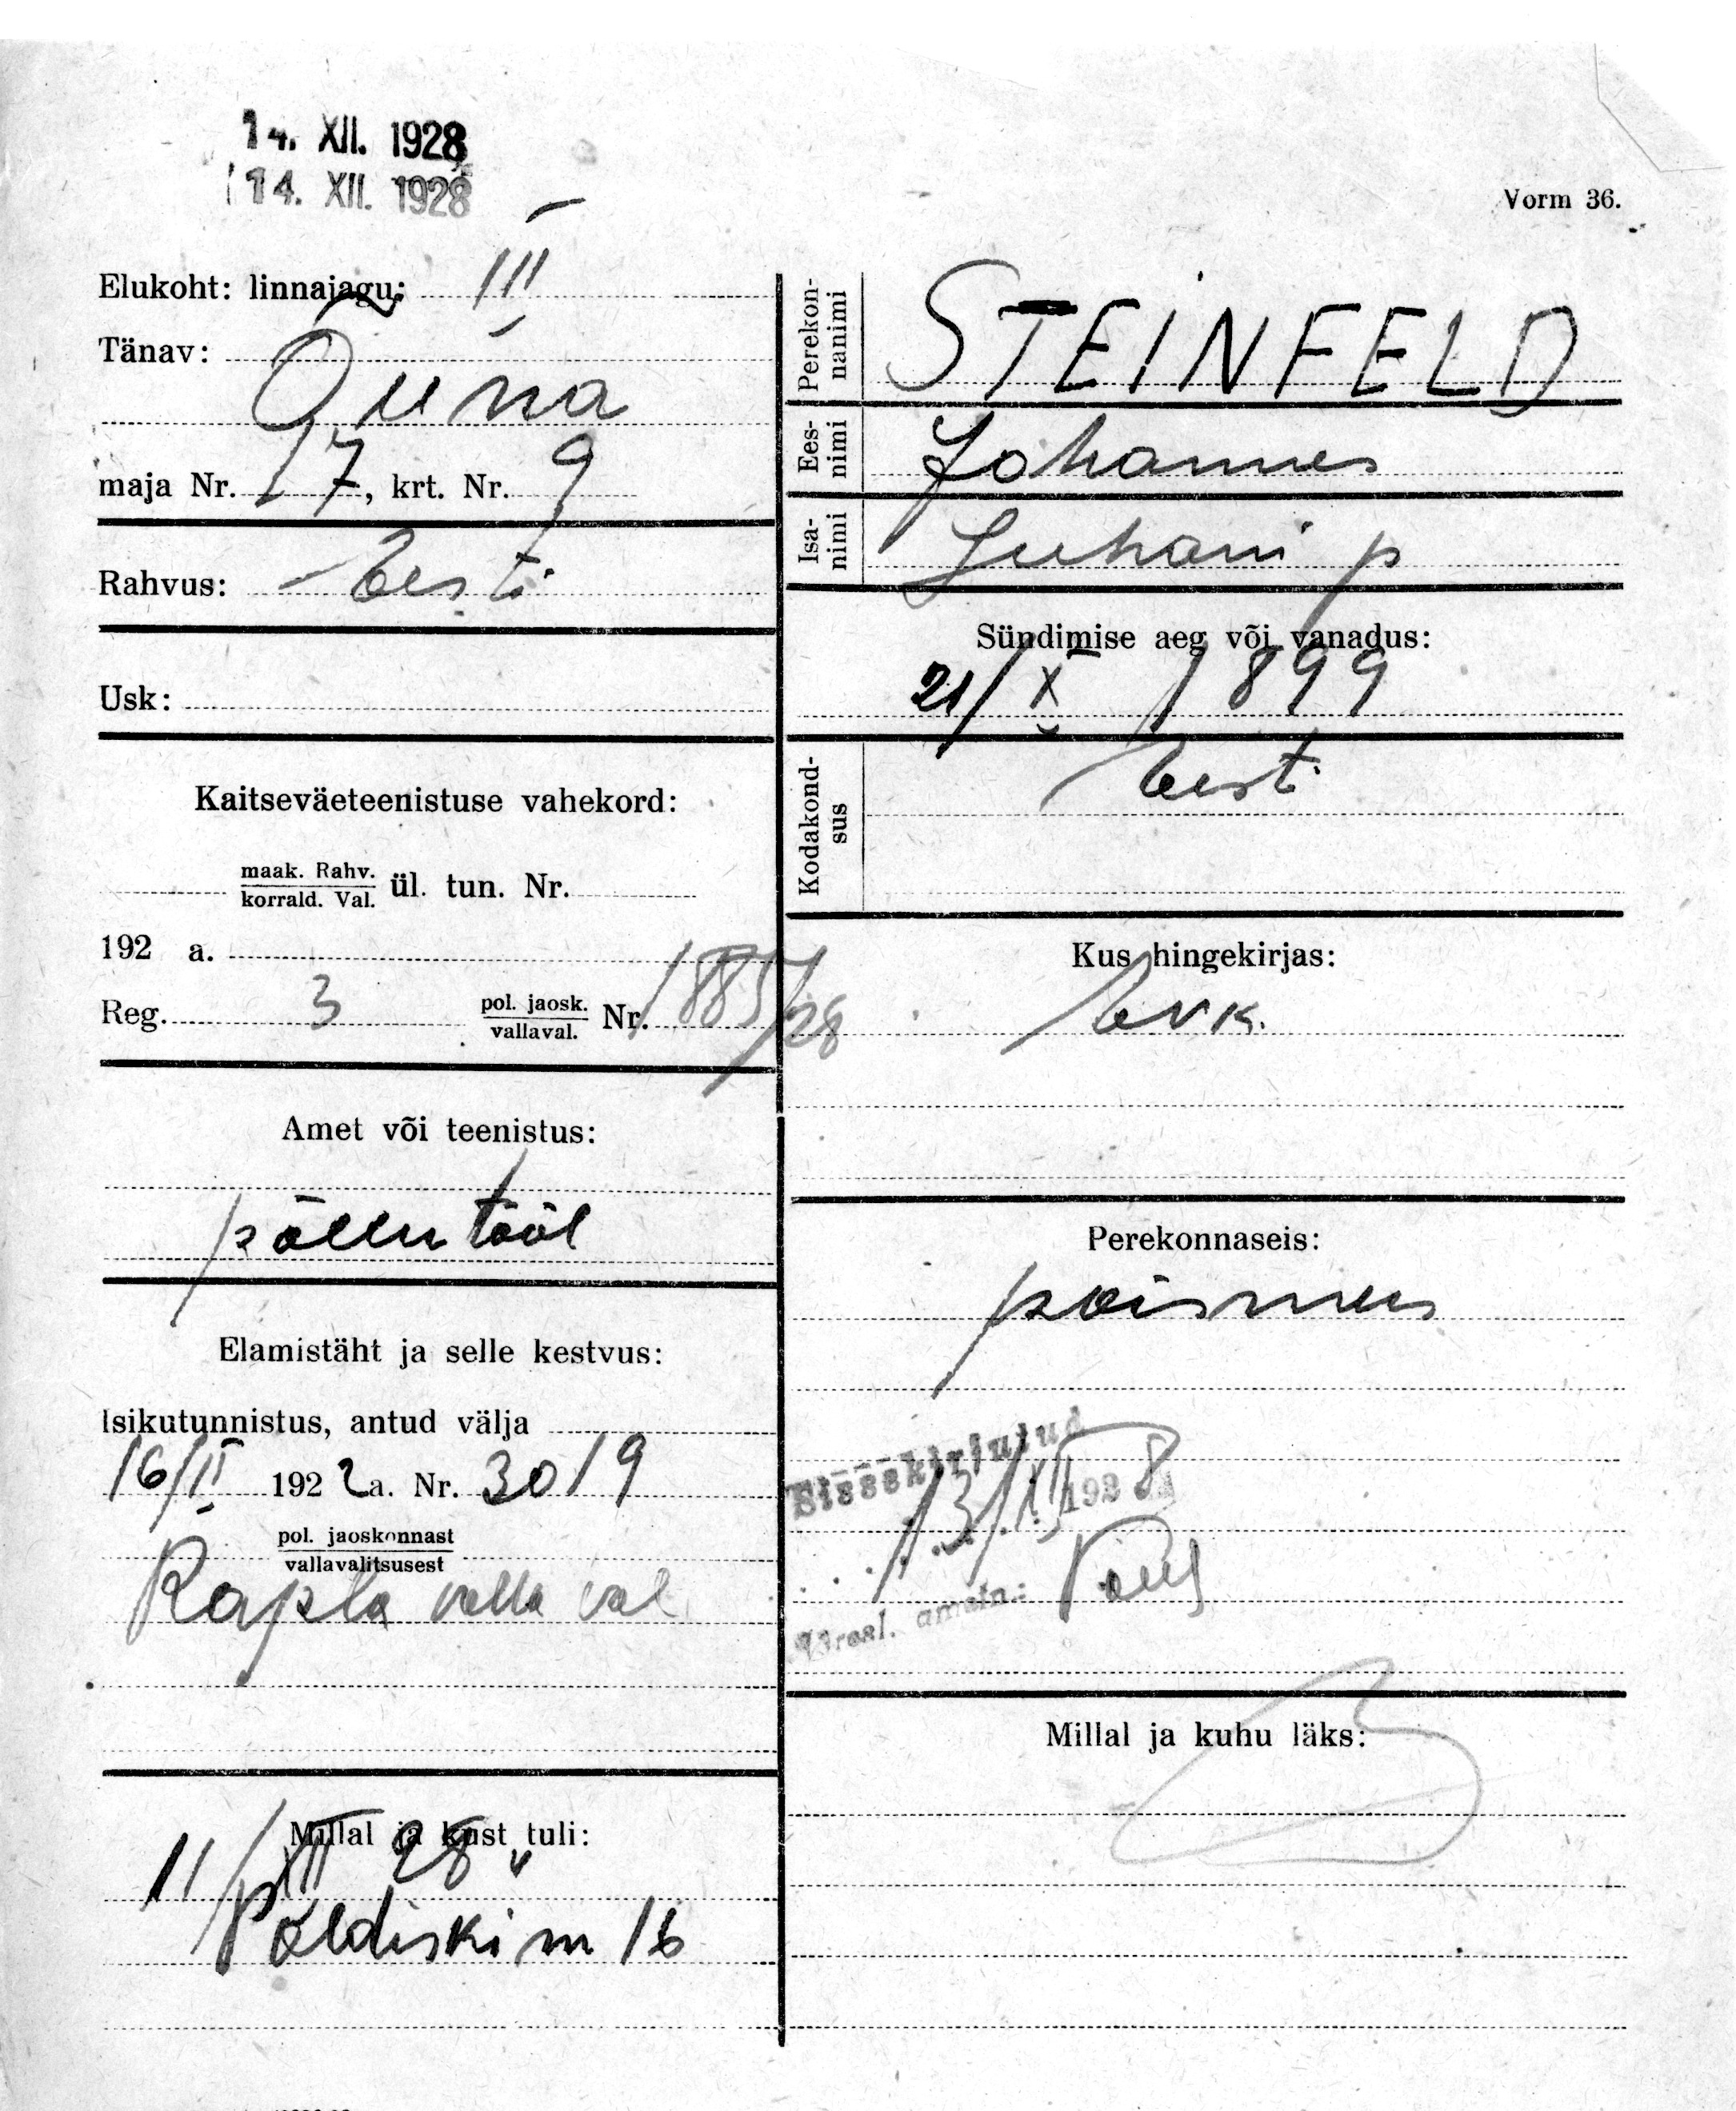 14. XII. 1928
14. XII. 1928
Vorm 36.
Elukoht: linnajagu: III
Tänav: Õuna
maja Nr. 17, krt. Nr. 9
Rahvus: Eesti
Usk:
Kaitseväeteenistuse vahekord:
maak. Rahv.
korrald. Val. ül. tun. Nr.
192 a.
Reg. 3 pol. jaosk. vallaval. Nr. 1885/28
Amet või teenistus:
põllutööl
Elamistäht ja selle kestvus:
Isikutunnistus, antud välja
16/II 1922 a. Nr. 3019
pol. jaoskonnast
vallavalitsusest
Rapla valla val
Millal ja kust tuli:
11/XII 28
Paldiski m 16
Perekon-
nanimi STEINFELD
Ees-
nimi Johannes
Isa-
nimi Juhani p
Sündimise aeg või vanadus:
21/X 1899
Kodakond-
sus Eesti
Kus hingekirjas:
Perekonnaseis:
poismees
Sissekirjutud
13/XII 1928
ametn.:
Millal ja kuhu läks: